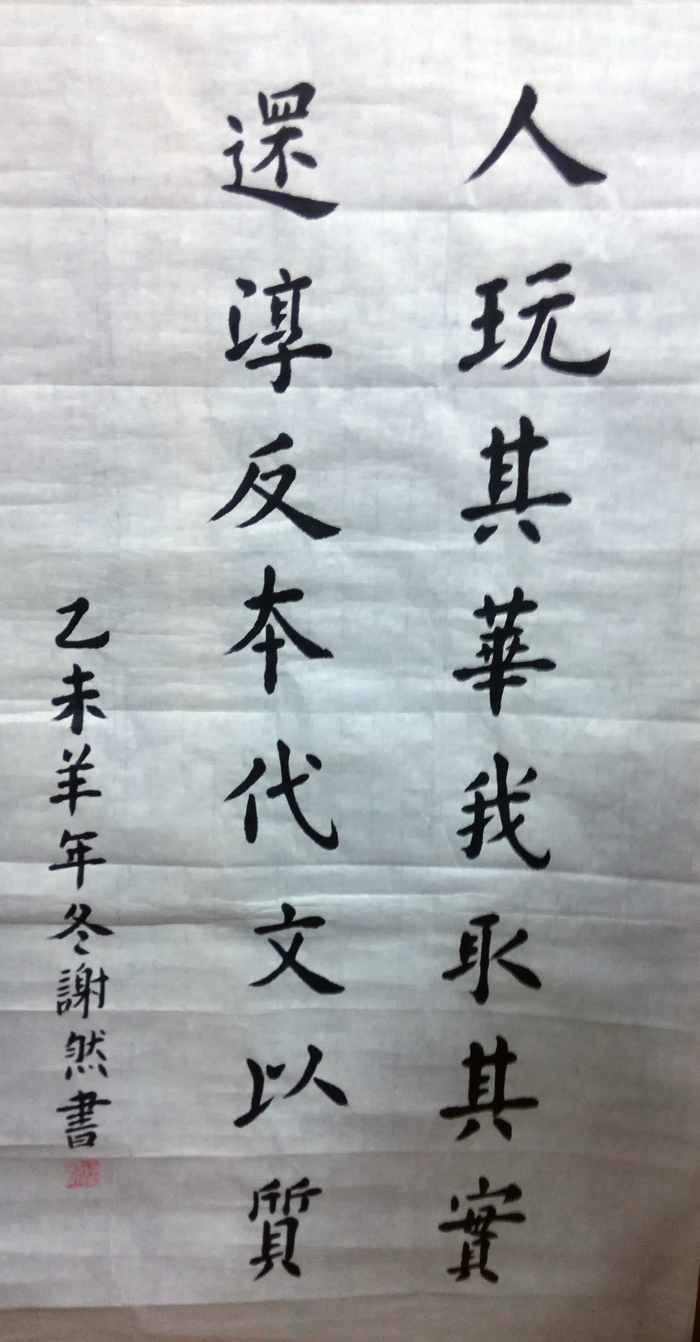 人玩其華我取其實
還淳反本代文以質
乙未羊年冬謝然書